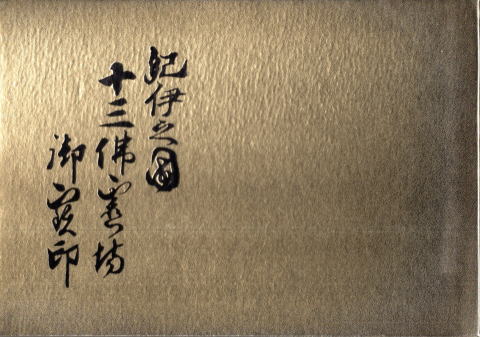 紀伊之國
十三佛霊場
御宝印